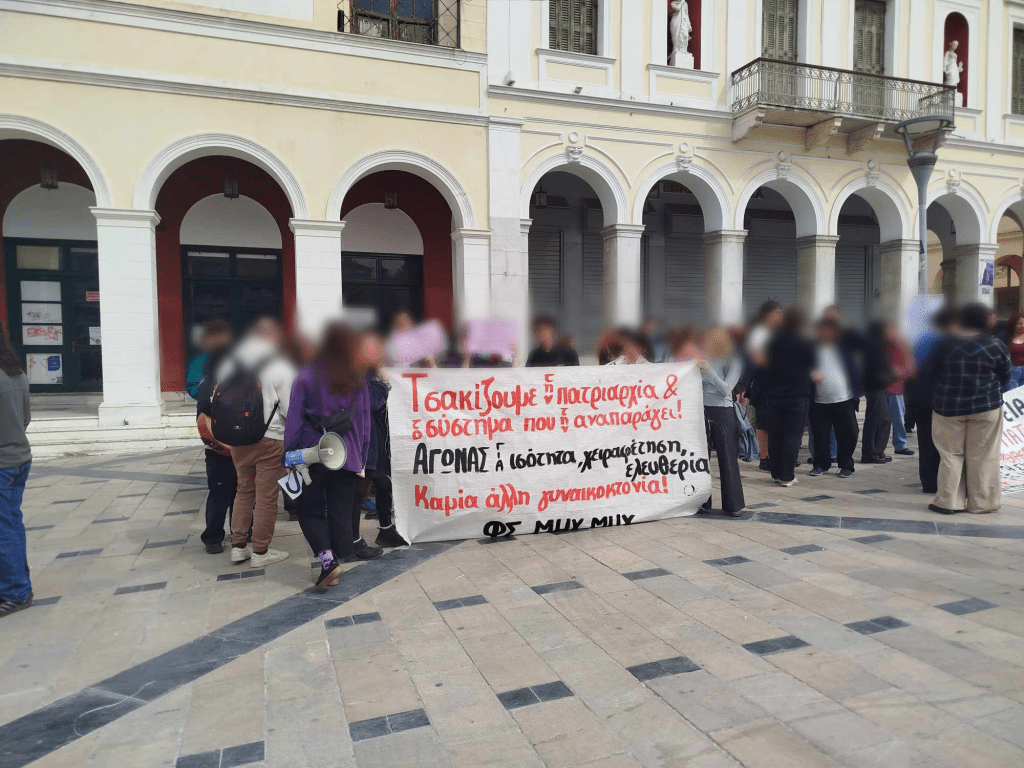 Τσακίζουμε την πατριαρχία &
το σύστημα που την αναπαράγει!
ΑΓΩΝΑΣ ΓΙΑ ισότητα, χειραφέτηση,
ελευθερία
Καμία άλλη γυναικοκτονία!
ΦΣ ΜΠΧ ΜΠΧ
ΕΙΑ